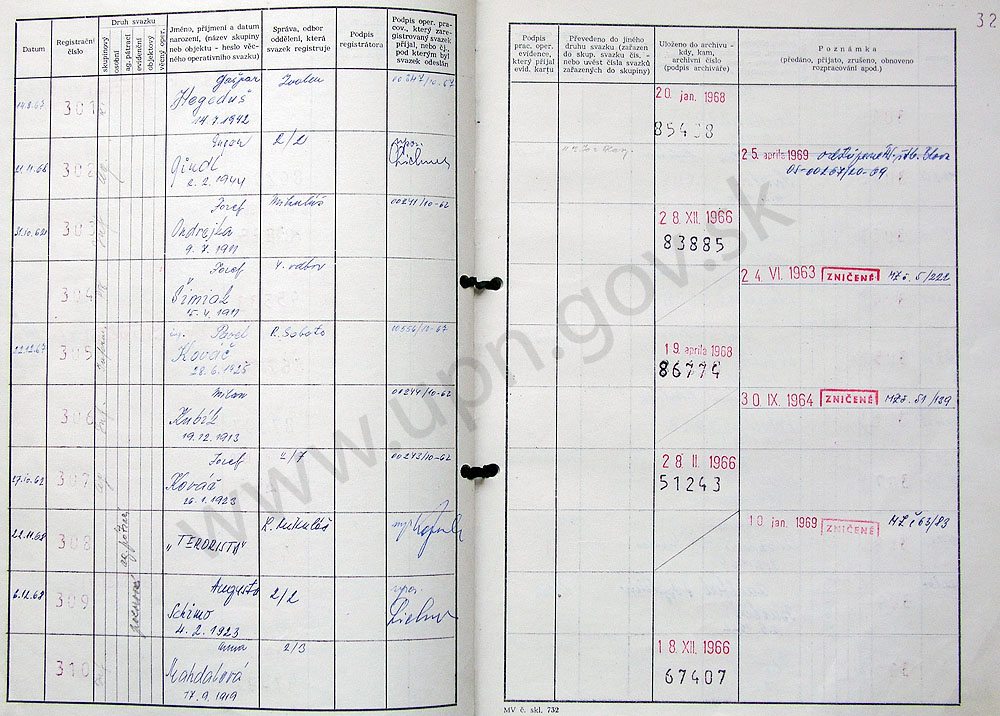 32
Datum
Registrační číslo
Druh svazku
skupinový
osobní
ag. pátrací
evidenční
objektový
věcný oper.
Jméno, příjmení a datum
narození, (název skupiny
neb objektu - heslo věc-
ného operativního svazku)
Správa, odbor
oddělení, která
svazek registruje
Podpis
registrátora
Podpis oper. pra-
cov., který zare-
gistrovaný svazek
přijal, nebo čj.,
pod kterým byl
svazek odeslán
Podpis
prac. oper.
evidence,
který přijal
evid. kartu
Převedeno do jiného
druhu svazku (zařazen
do skup. svazku čís. -
nebo uvést čísla svazků
zařazených do skupiny)
Uloženo do archivu -
kdy, kam,
archivní číslo
(podpis archiváře)
Poznámka
(předáno, přijato, zrušeno, obnoveno
rozpracování apod.)
301
Gašpar
Hegeduš
14.7.1942
Zvolen
20. jan. 1968
85438
21.11.68 302
Gindl
2.2.1944
2/2
25. apríla 1969
303
Jozef
Ondrejka
9.7.1911
Mikuláš
00241/10-62
28. XII. 1966
83885
304
Jozef
Šimiak
5.4.1911
V. odbor
24. VI. 1963 ZNIČENÉ MZ č. 5/222
22.12.67 305
ing. Pavel
Kováč
28.6.1925
R. Sobota
10556/10-67
19. apríla 1968
86774
306
Milan
Kubík
19.12.1913
00244/10-62
30. IX. 1964 ZNIČENÉ MZ č. 51/139
27.10.62 307
Jozef
Kováč
26.1.1923
2/7
00243/10-62
28. II. 1966
51243
22.11.68 308
„TERORISTA"
L. Mikuláš
10. jan. 1969 ZNIČENÉ MZ č 63/83
6.12.68 309
Augusto
Schimo
4.2.1923
2/2
310
Anna
Mahdalová
17.9.1919
2/3
18. XII. 1966
67407
MV č. skl. 732
www.upn.gov.sk